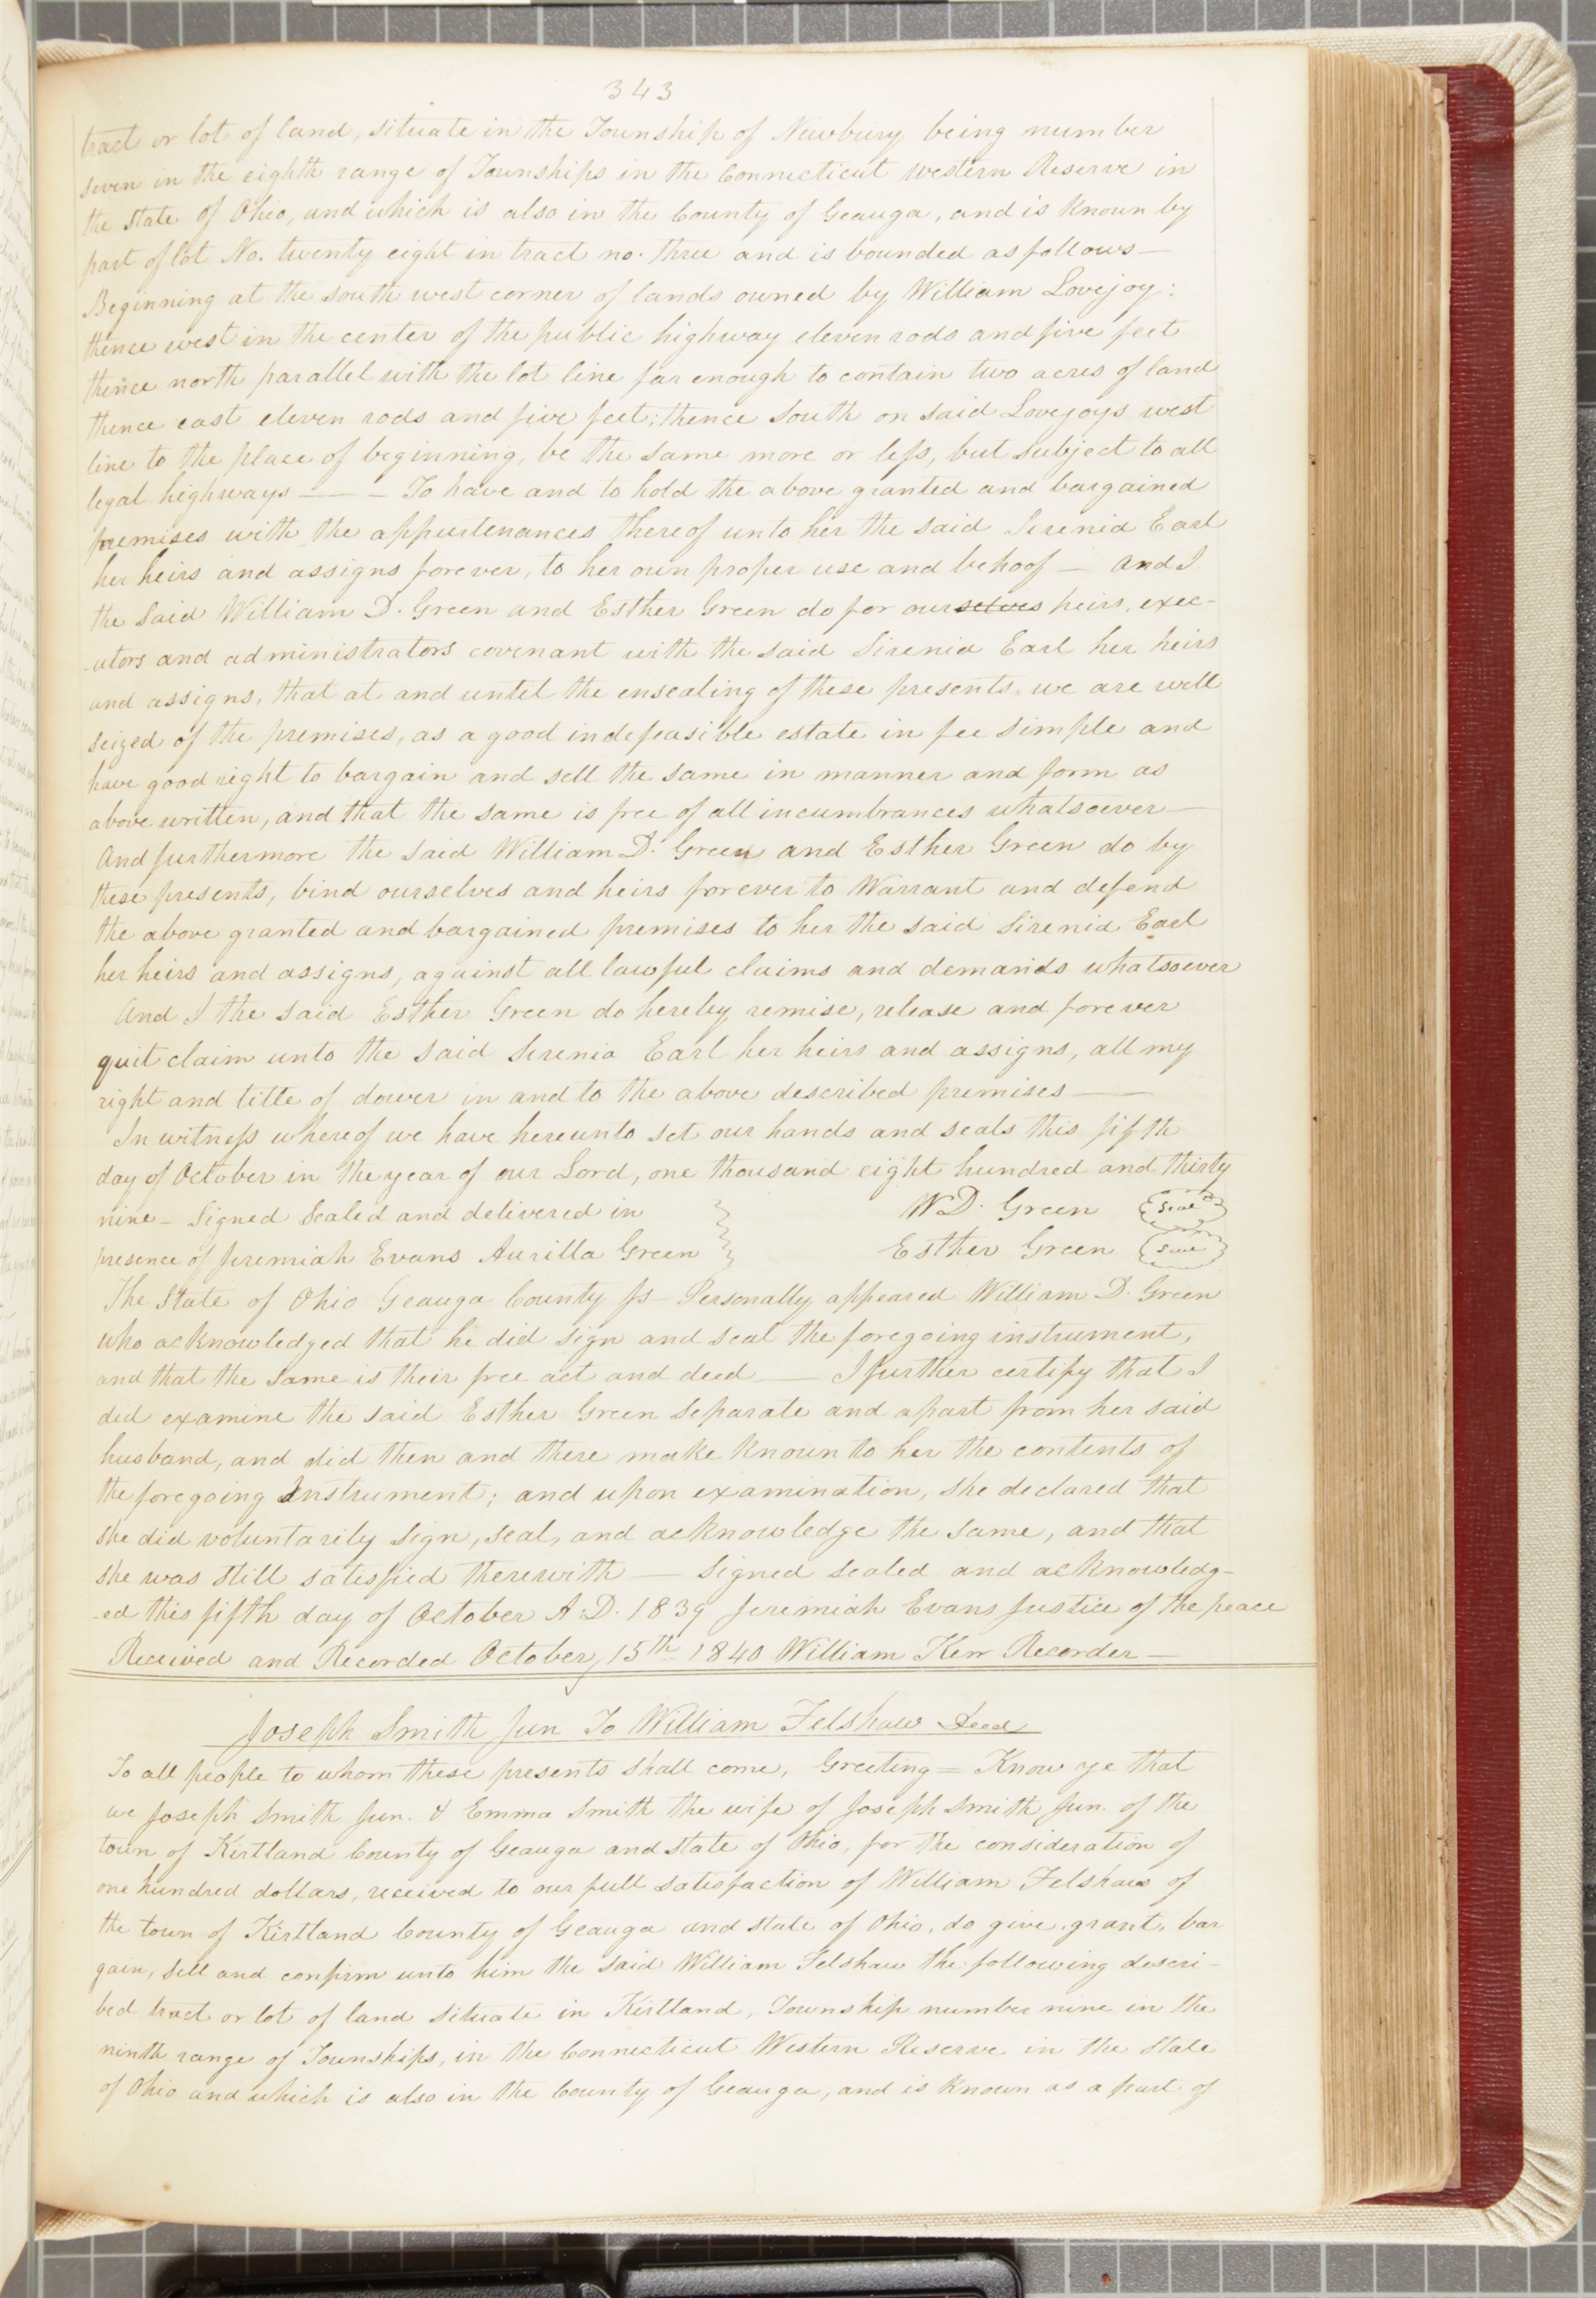 343
tract or lot of land, situate in the Township of Newbury, being number
seven in the eighth range of Townships in the Connecticut western Reserve in
the State of Ohio, and which is also in the County of Geauga, and is known by
part of lot No. twenty eight in tract no. three and is bounded as follows—
Beginning at the south west corner of lands owned by William Lovejoy:
thence west in the center of the public highway eleven rods and five feet
thence north parallel with the lot line far enough to contain two acres of land
thence east eleven rods and five feet; thence South on said Lovejoys west
line to the place of beginning, be the same more or less, but subject to all
legal highways — — – To have and to hold the above granted and bargained
premises with the appurtenances thereof unto her the said Serenia Earl
her heirs and assigns forever, to her own proper use and behoof — And I
the said William D. Green and Esther Green do for ourselves heirs, exec-
-utors and administrators covenant with the said Sirenia Earl her heirs
and assigns, that at and until the ensealing of these presents we are well
seized of the premises, as a good indefeasible estate in fee simple and
have good right to bargain and sell the same in manner and form as
above written, and that the same is free of all incumbrances whatsoever—
And furthermore the said William D. Green and Esther Green do by
these presents, bind ourselves and heirs forever to Warrant and defend
the above granted and bargained premises to her the said Sirenia Earl
her heirs and assigns, against all lawful claims and demands whatsoever
And I the said Esther Green do hereby remise, release and forever
quit claim unto the said Serenia Earl her heirs and assigns, all my
right and title of dower in and to the above described premises——
In witness whereof we have hereunto set our hands and seals this fifth
day of October in the year of our Lord, one thousand eight hundred and thirty
nine – Signed Sealed and delivered in W D. Green Seal
presence of Jeremiah Evans Aurilla Green Esther Green Seal
The State of Ohio Geauga County ss– Personally appeared William D. Green
who acknowledged that he did sign and seal the foregoing instrument,
and that the same is their free act and deed — I further certify that I
did examine the said Esther Green Separate and apart from her said
husband, and did then and there make known to her the contents of
the foregoing Instrument; and upon examination, she declared that
she did voluntarily Sign, seal, and acknowledge the same, and that
she was still satisfied therewith — Signed sealed and acknowledg-
-ed this fifth day of October A.D. 1839 Jeremiah Evans Justice of the peace
Received and Recorded October 15th 1840 William Kerr Recorder—
Joseph Smith Jun To William Felshaw Deed
To all people to whom these presents shall come, Greeting = Know ye that
we Joseph Smith Jun. & Emma Smith the wife of Joseph Smith Jun. of the
town of Kirtland County of Geauga and state of Ohio, for the consideration of
one hundred dollars, received to our full satisfaction of William Felshaw of
the town of Kirtland County of Geauga and state of Ohio, do give, grant, bar
gain, sell and confirm unto him the said William Felshaw the following descri-
bed tract or lot of land situate in Kirtland, Township number nine in the
ninth range of Townships, in the Connecticut Western Reserve in the State
of Ohio and which is also in the County of Geauga, and is known as a part of